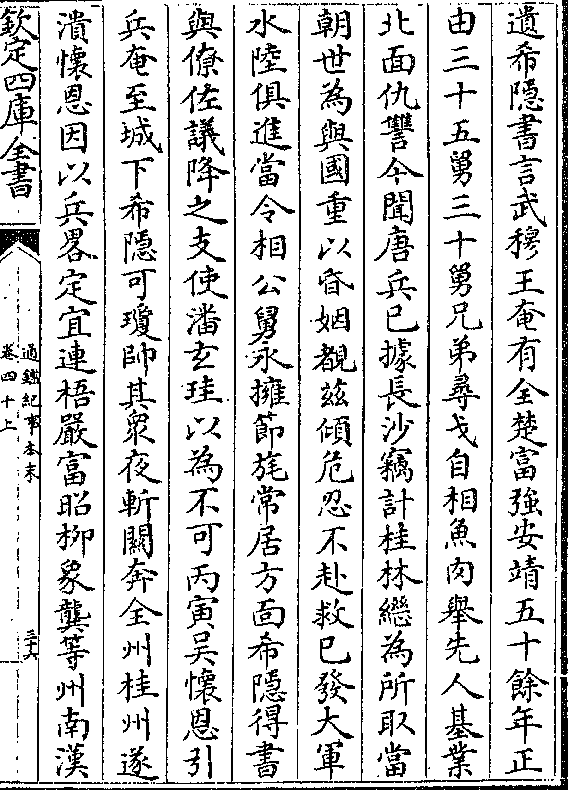 遺希隱書言武穆王奄有全楚富強安靖五十餘年正
由三十五舅三十舅兄弟尋戈自相魚肉舉先人基業
北面仇讐今聞唐兵已據長沙竊計桂林繼為所取當
朝世為與國重以昏姻覩兹傾危忍不赴救已發大軍
水陸俱進當令相公舅永擁節旄常居方面希隱得書
與僚佐議降之支使潘玄珪以為不可丙寅吳懷恩引
兵奄至城下希隱可瓊帥其衆夜斬關奔全州桂州遂
潰懷恩因以兵畧定宜連梧嚴富昭柳象龔等州南漢
欽定四庫全書
通鑑紀事本末
卷四十上
三十六